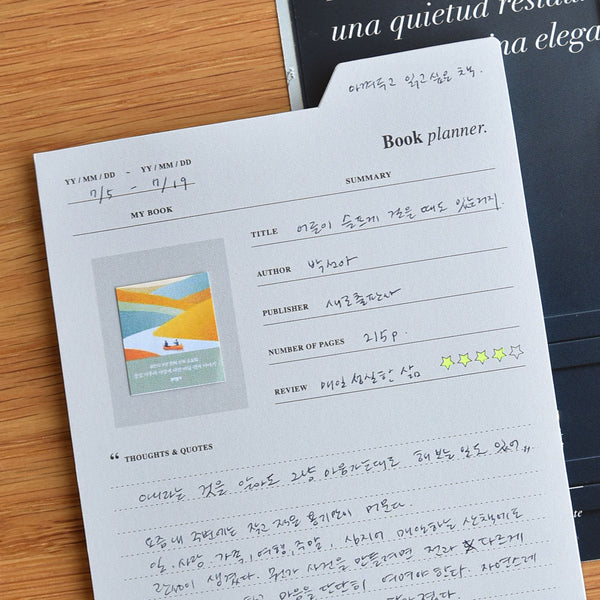 una quietud restau
ina elega
아껴두고 읽고싶은 책.
Book planner.
YY / MM / DD - YY / MM / DD
7/5 - 7/19
MY BOOK
SUMMARY
TITLE 어른이 슬프게 걸을 때도 있는거지
AUTHOR 박선아
PUBLISHER 새로출판사
NUMBER OF PAGES 215p.
REVIEW 매일 성실한 삶
“ THOUGHTS & QUOTES
아니라는 것을 알아도 그냥 마음가는대로 해보는 일도 있어"
요즘 내 주변에는 작고 작은 용기들이 머문다.
일, 사랑, 가족, 여행, 주말, 심지어 매일하는 산책에도
생겼다. 뭔가 사건을 만들려면 전과 다르게
마음을 단단히 여며야 한다. 자연스레